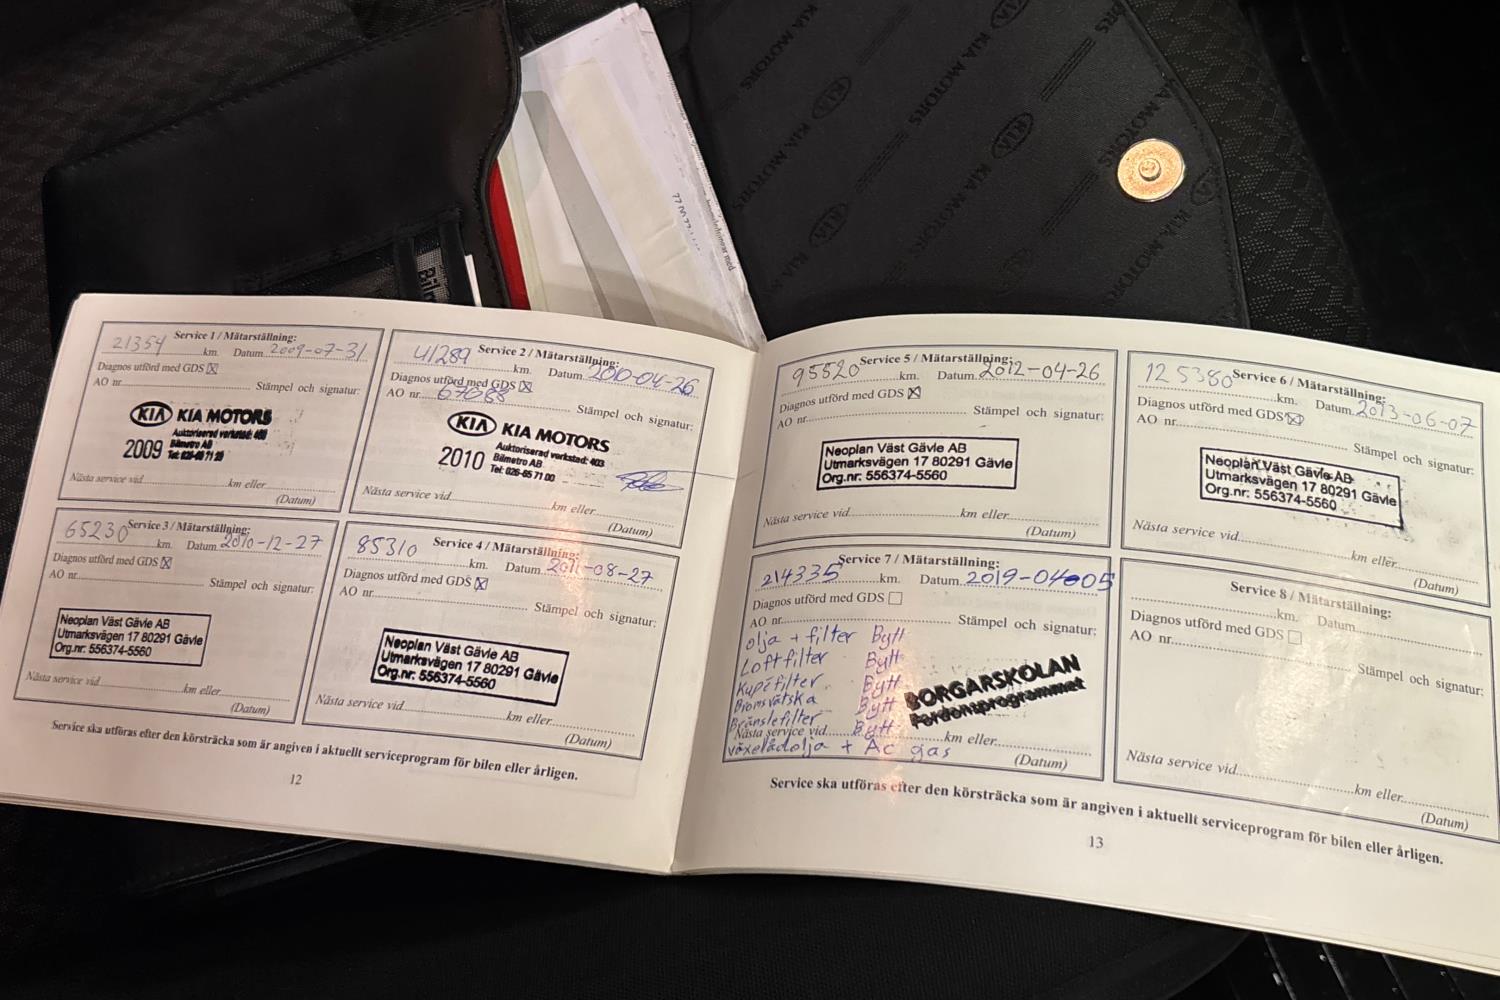 KIA MOTORS
Service 1 / Mätarställning:
21354 km. Datum 2009-07-31
Diagnos utförd med GDS ☒
AO nr
Stämpel och signatur:
KIA KIA MOTORS
2009
Auktoriserad verkstad:
Bilmetro AB
Nästa service vid km eller
(Datum)
Service 2 / Mätarställning:
41289 km. Datum 2010-04-26
Diagnos utförd med GDS ☒
AO nr. 67088
Stämpel och signatur:
KIA KIA MOTORS
2010
Auktoriserad verkstad: 403
Bilmetro AB
Tel: 026-65 71 00
Nästa service vid km eller
(Datum)
Service 3 / Mätarställning:
65230 km. Datum 2010-12-27
Diagnos utförd med GDS ☒
AO nr
Stämpel och signatur:
Neoplan Väst Gävle AB
Utmarksvägen 17 80291 Gävle
Org.nr: 556374-5560
Nästa service vid km eller
(Datum)
Service 4 / Mätarställning:
85310 km. Datum 2011-08-27
Diagnos utförd med GDS ☒
AO nr
Stämpel och signatur:
Neoplan Väst Gävle AB
Utmarksvägen 17 80291 Gävle
Org.nr: 556374-5560
Nästa service vid km eller
(Datum)
Service ska utföras efter den körsträcka som är angiven i aktuellt serviceprogram för bilen eller årligen.
12
Service 5 / Mätarställning:
95520 km. Datum 2012-04-26
Diagnos utförd med GDS ☒
AO nr
Stämpel och signatur:
Neoplan Väst Gävle AB
Utmarksvägen 17 80291 Gävle
Org.nr: 556374-5560
Nästa service vid km eller
(Datum)
Service 6 / Mätarställning:
125380 km. Datum 2013-06-07
Diagnos utförd med GDS ☒
AO nr
Stämpel och signatur:
Neoplan Väst Gävle AB
Utmarksvägen 17 80291 Gävle
Org.nr: 556374-5560
Nästa service vid km eller
(Datum)
Service 7 / Mätarställning:
214335 km. Datum 2019-04-05
Diagnos utförd med GDS ☐
AO nr
Stämpel och signatur:
olja + filter Bytt
Loftfilter Bytt
Kupéfilter Bytt
Bromsvätska Bytt
Bränslefilter Bytt
växelådolja + Ac gas
BORGARSKOLAN
Fordonsprogrammet
Nästa service vid km eller
(Datum)
Service 8 / Mätarställning:
km. Datum
Diagnos utförd med GDS ☐
AO nr
Stämpel och signatur:
Nästa service vid km eller
(Datum)
Service ska utföras efter den körsträcka som är angiven i aktuellt serviceprogram för bilen eller årligen.
13